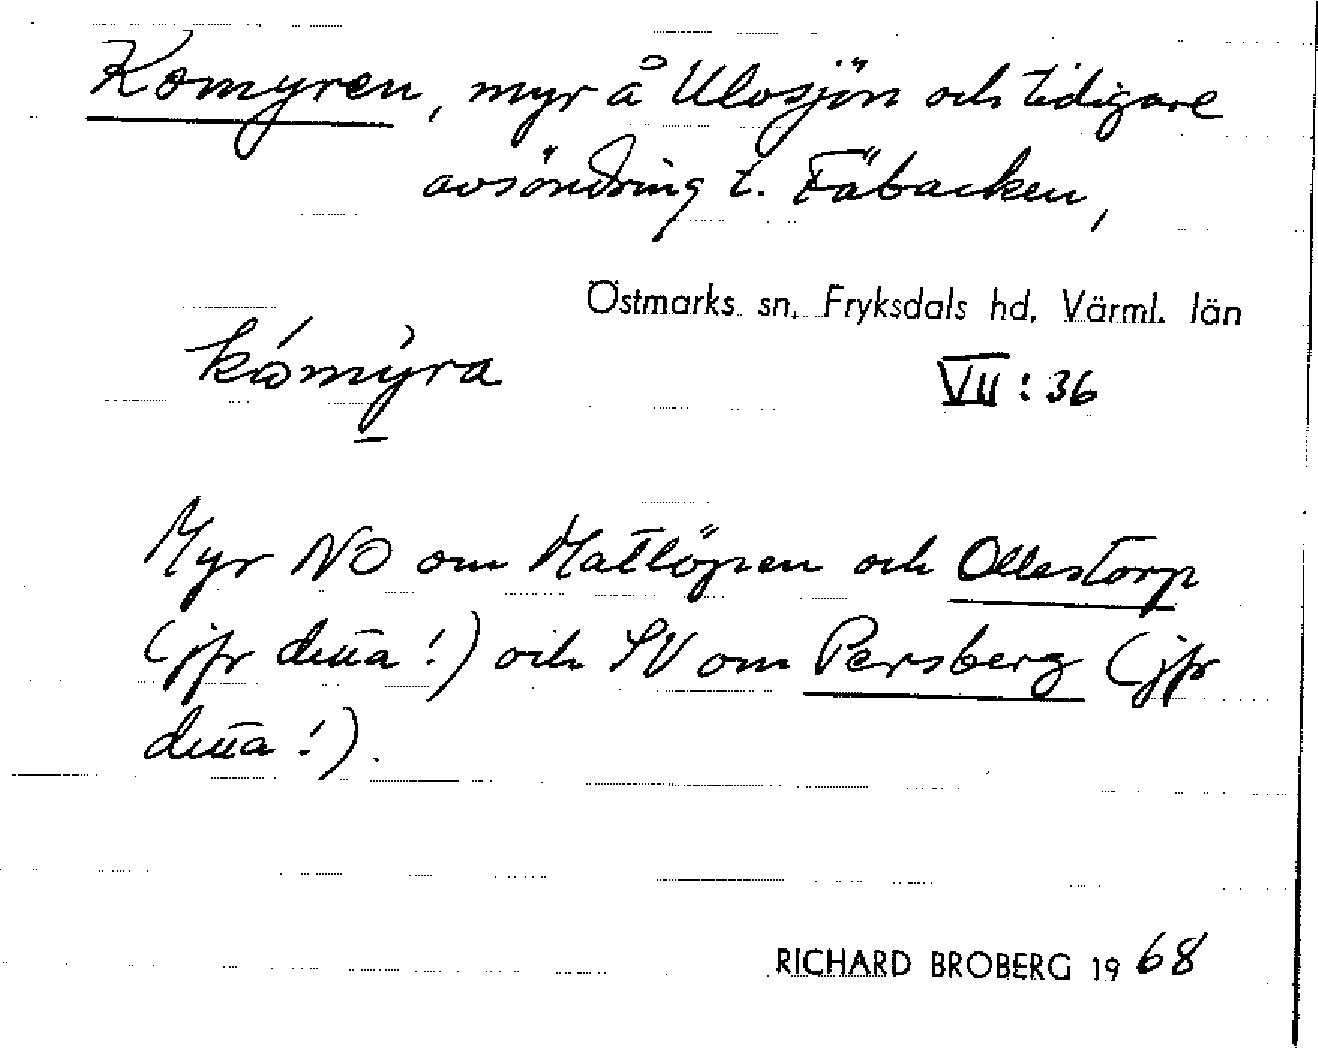 Komyren, myr å Ulvsjön och tidigare
avsöndring t. Fäbacken,
Östmarks sn, Fryksdals hd, Värml. län
kómỳra
VII : 36
Myr NO om Matlöpen och Ollestorp
(jfr detta!) och SV om Persberg (jfr
detta!).
RICHARD BROBERG 1968